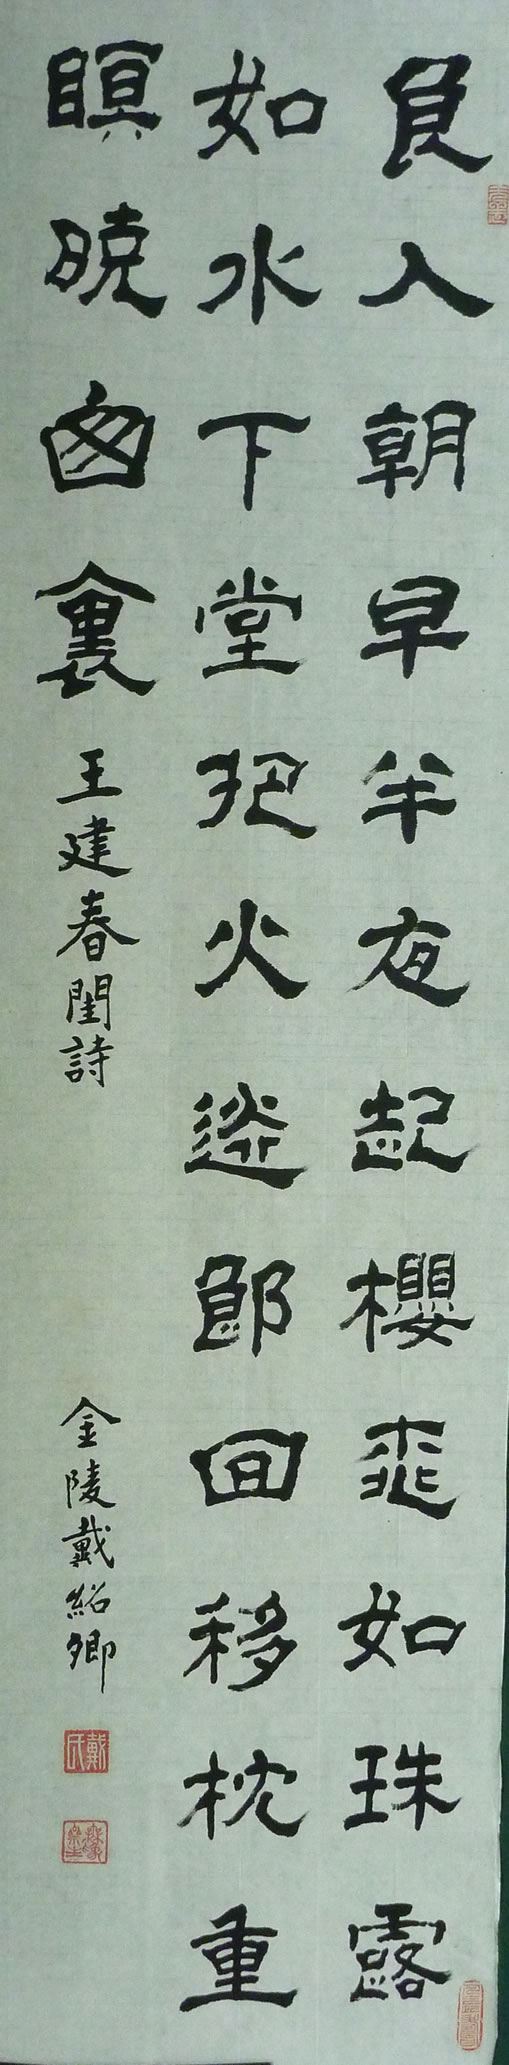 良人朝早半夜起櫻桃如珠露
如水下堂把火送郎回移枕重
瞑曉囱裏
王建春閨詩
金陵戴紹卿
戴氏